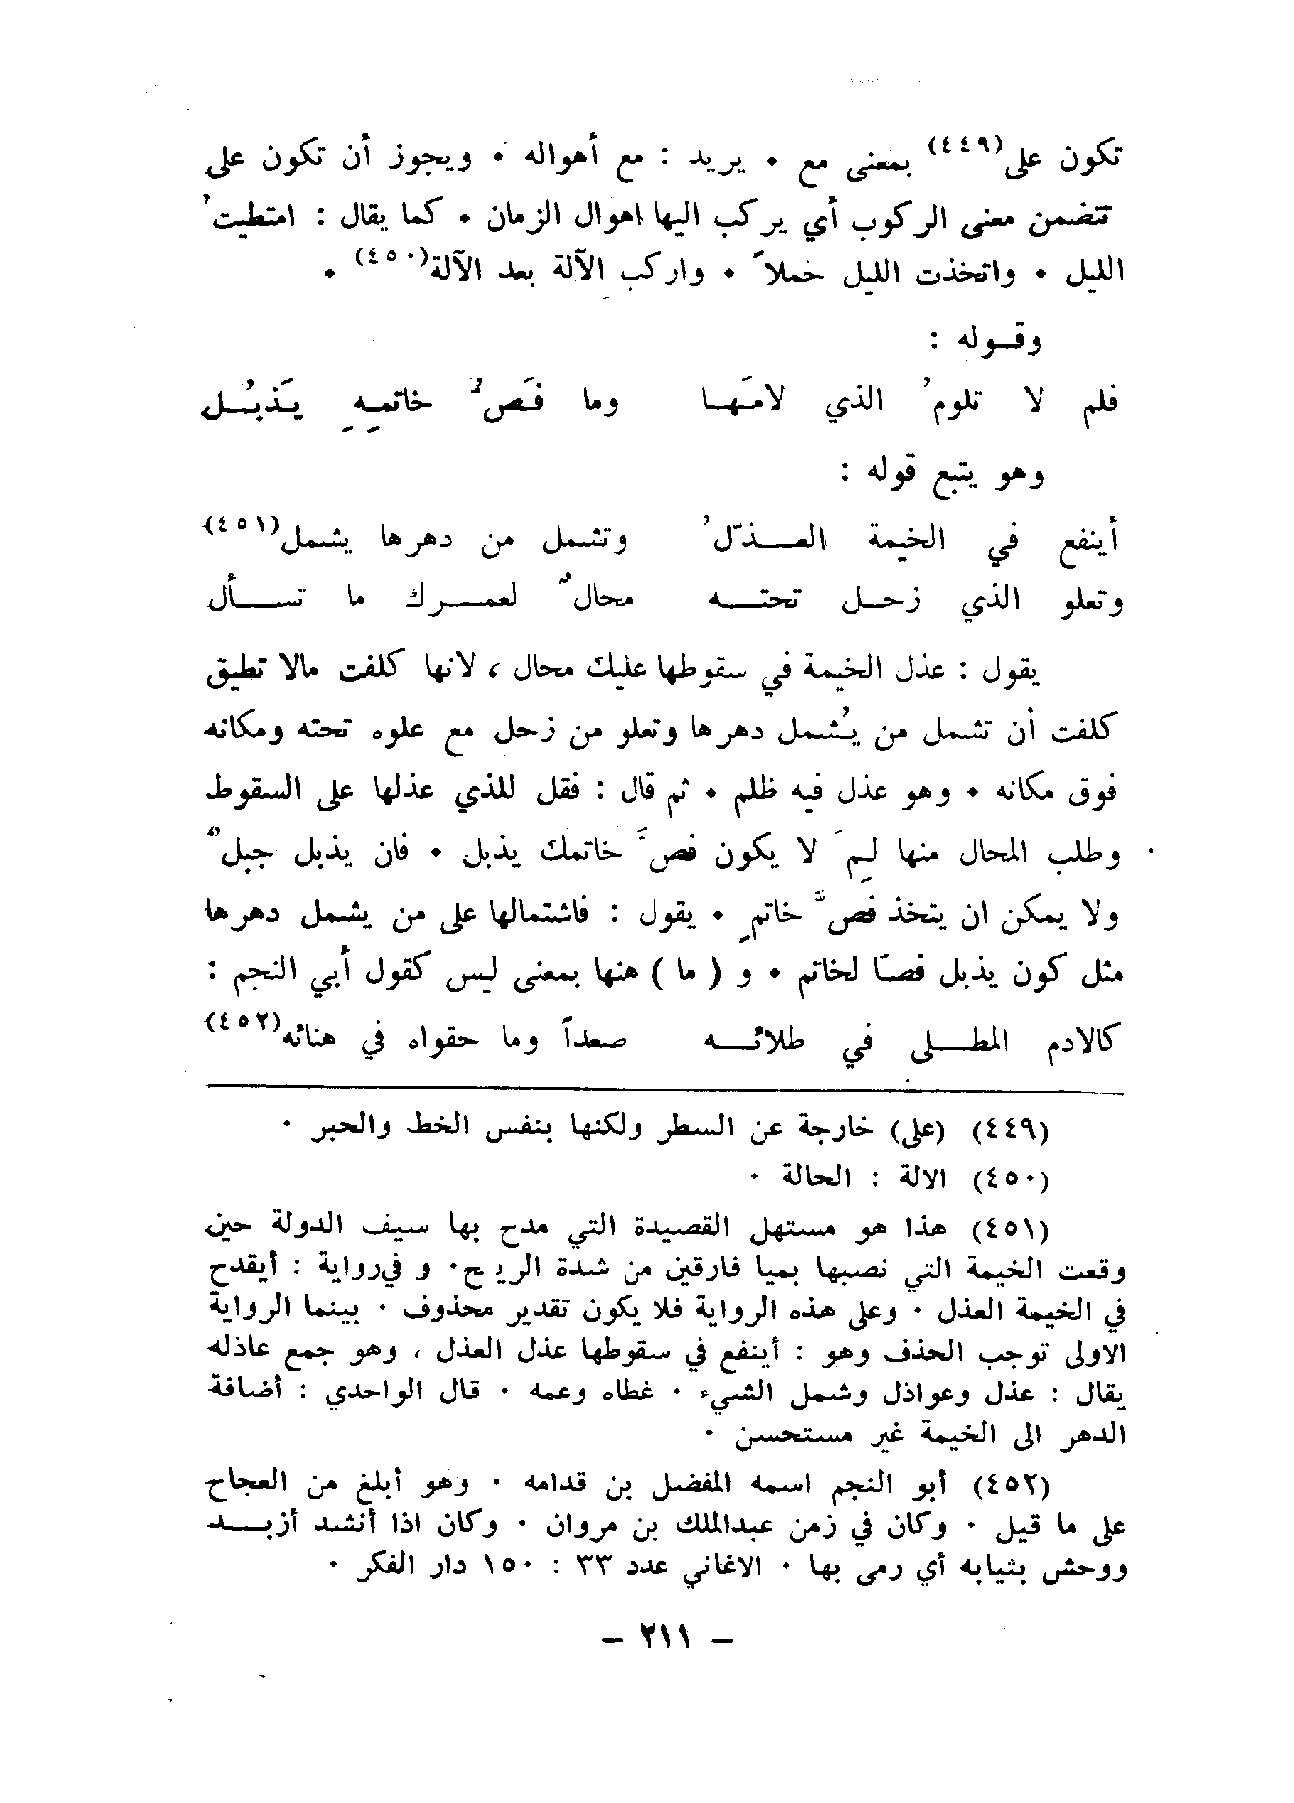 تكون على(٤٤٩) بمعنى مع • يريد : مع أهواله • ويجوز أن تكون على
تتضمن معنى الركوب أي يركب اليها اهوال الزمان • كما يقال : امتطيتُ
الليل • واتخذت الليل خملاً • واركب الآلة بعد الآلة(٤٥٠) •
وقوله :
فلم لا تلومُ الذي لامَها وما فَصُّ خاتمِهِ يَذبُل
وهو يتبع قوله :
أينفع في الخيمة العذّلُ وتشمل من دهرها يشمل(٤٥١)
وتعلو الذي زحل تحته محالٌ لعمرك ما تسأل
يقول : عذل الخيمة في سقوطها عليك محال ، لانها كلفت مالا تطيق
كلفت أن تشمل من يُشمل دهرها وتعلو من زحل مع علوه تحته ومكانه
فوق مكانه • وهو عذل فيه ظلم • ثم قال : فقل للذي عذلها على السقوط
وطلب المحال منها لِمَ لا يكون فصَّ خاتمك يذبل • فان يذبل جبلٌ
ولا يمكن ان يتخذ فصَّ خاتمٍ • يقول : فاشتمالها على من يشمل دهرها
مثل كون يذبل فصّا لخاتم • و ( ما ) هنها بمعنى ليس كقول أبي النجم :
كالادم المطلى في طلائه صعداً وما حقواه في هنائه(٤٥٢)
(٤٤٩) (على) خارجة عن السطر ولكنها بنفس الخط والحبر •
(٤٥٠) الالة : الحالة •
(٤٥١) هذا هو مستهل القصيدة التي مدح بها سيف الدولة حين
وقعت الخيمة التي نصبها بميا فارقين من شدة الريح • و في رواية : أيقدح
في الخيمة العذل • وعلى هذه الرواية فلا يكون تقدير محذوف • بينما الرواية
الاولى توجب الحذف وهو : أينفع في سقوطها عذل العذل ، وهو جمع عاذله
يقال : عذل وعواذل وشمل الشيء • غطاه وعمه • قال الواحدي : أضافة
الدهر الى الخيمة غير مستحسن •
(٤٥٢) أبو النجم اسمه المفضل بن قدامه • وهو أبلغ من العجاج
على ما قيل • وكان في زمن عبدالملك بن مروان • وكان اذا أنشد أزبد
ووحش بثيابه أي رمى بها • الاغاني عدد ٣٣ : ١٥٠ دار الفكر •
– ٢١١ –